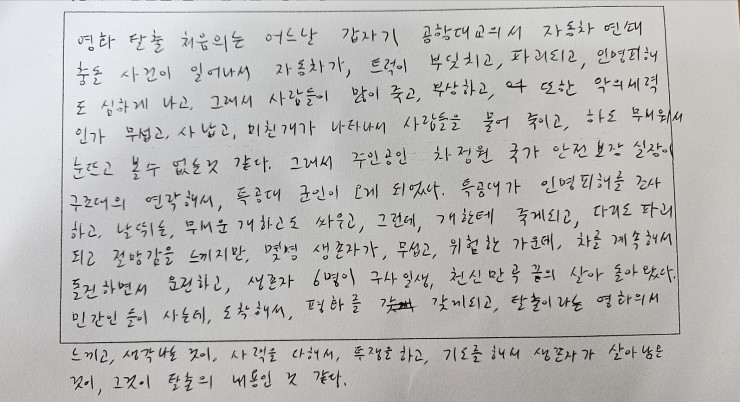 영화 탈출 처음의는 어느날 갑자기 공항대교의서 자동차 연쇄
충돌 사건이 일어나서 자동차가, 트럭이 부딪치고, 파괴되고, 인명피해
도 심하게 나고, 그래서 사람들이 많이 죽고, 부상하고, 또한 악의세력
인가 무섭고, 사납고, 미친개가 나타나서 사람들을 물어 죽이고, 하도 무서워서
눈뜨고 볼수 없는것 같다. 그래서 주인공인 차정원 국가 안전보장 실장이
구조대의 연락해서, 특공대 군인이 오게 되었다. 특공대가 인명피해를 조사
하고, 날뛰는, 무서운 개하고도 싸우고, 그런데, 개한테 죽게되고, 다리도 파괴
되고 절망감을 느끼지만, 몇명 생존자가, 무섭고, 위험한 가운데, 차를 계속해서
돌진하면서 운전하고, 생존자 6명이 구사일생, 천신만곡 끝의 살아 돌아왔다.
민간인들이 사는데, 도착해서, 평화를 갖게되고, 탈출이라는 영화의서
느끼고, 생각나는 것이, 사력을 다해서, 투쟁을하고, 기도를 해서 생존자가 살아남은
것이, 그것이 탈출의 내용인 것 같다.